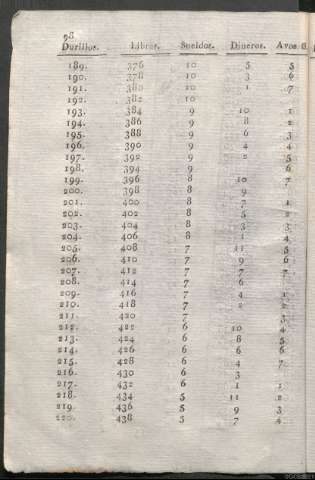 98
Durillos. Libras. Sueldos. Dineros. Avos
189. 376 10 5 5
190. 378 10 3 6
191. 380 10 1 7
192. 382 10
193. 384 9 10 1
194. 386 9 8 2
195. 388 9 6 3
196. 390 9 4 4
197. 392 9 2 5
198. 394 9 6
199. 396 8 10 7
200. 398 8 9
201. 400 8 7 1
202. 402 8 5 2
203. 404 8 3 3
204. 406 8 1 4
205. 408 7 11 5
206. 410 7 9 6
207. 412 7 7 7
208. 414 7 6
209. 416 7 4 1
210. 418 7 2 2
211. 420 7 3
212. 422 6 10 4
213. 424 6 8 5
214. 426 6 6 6
215. 428 6 4 7
216. 430 6 3
217. 432 6 1 1
218. 434 5 11 2
219. 436 5 9 3
220. 438 5 7 4